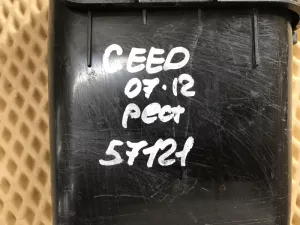 CEED
07.12
рест
57121